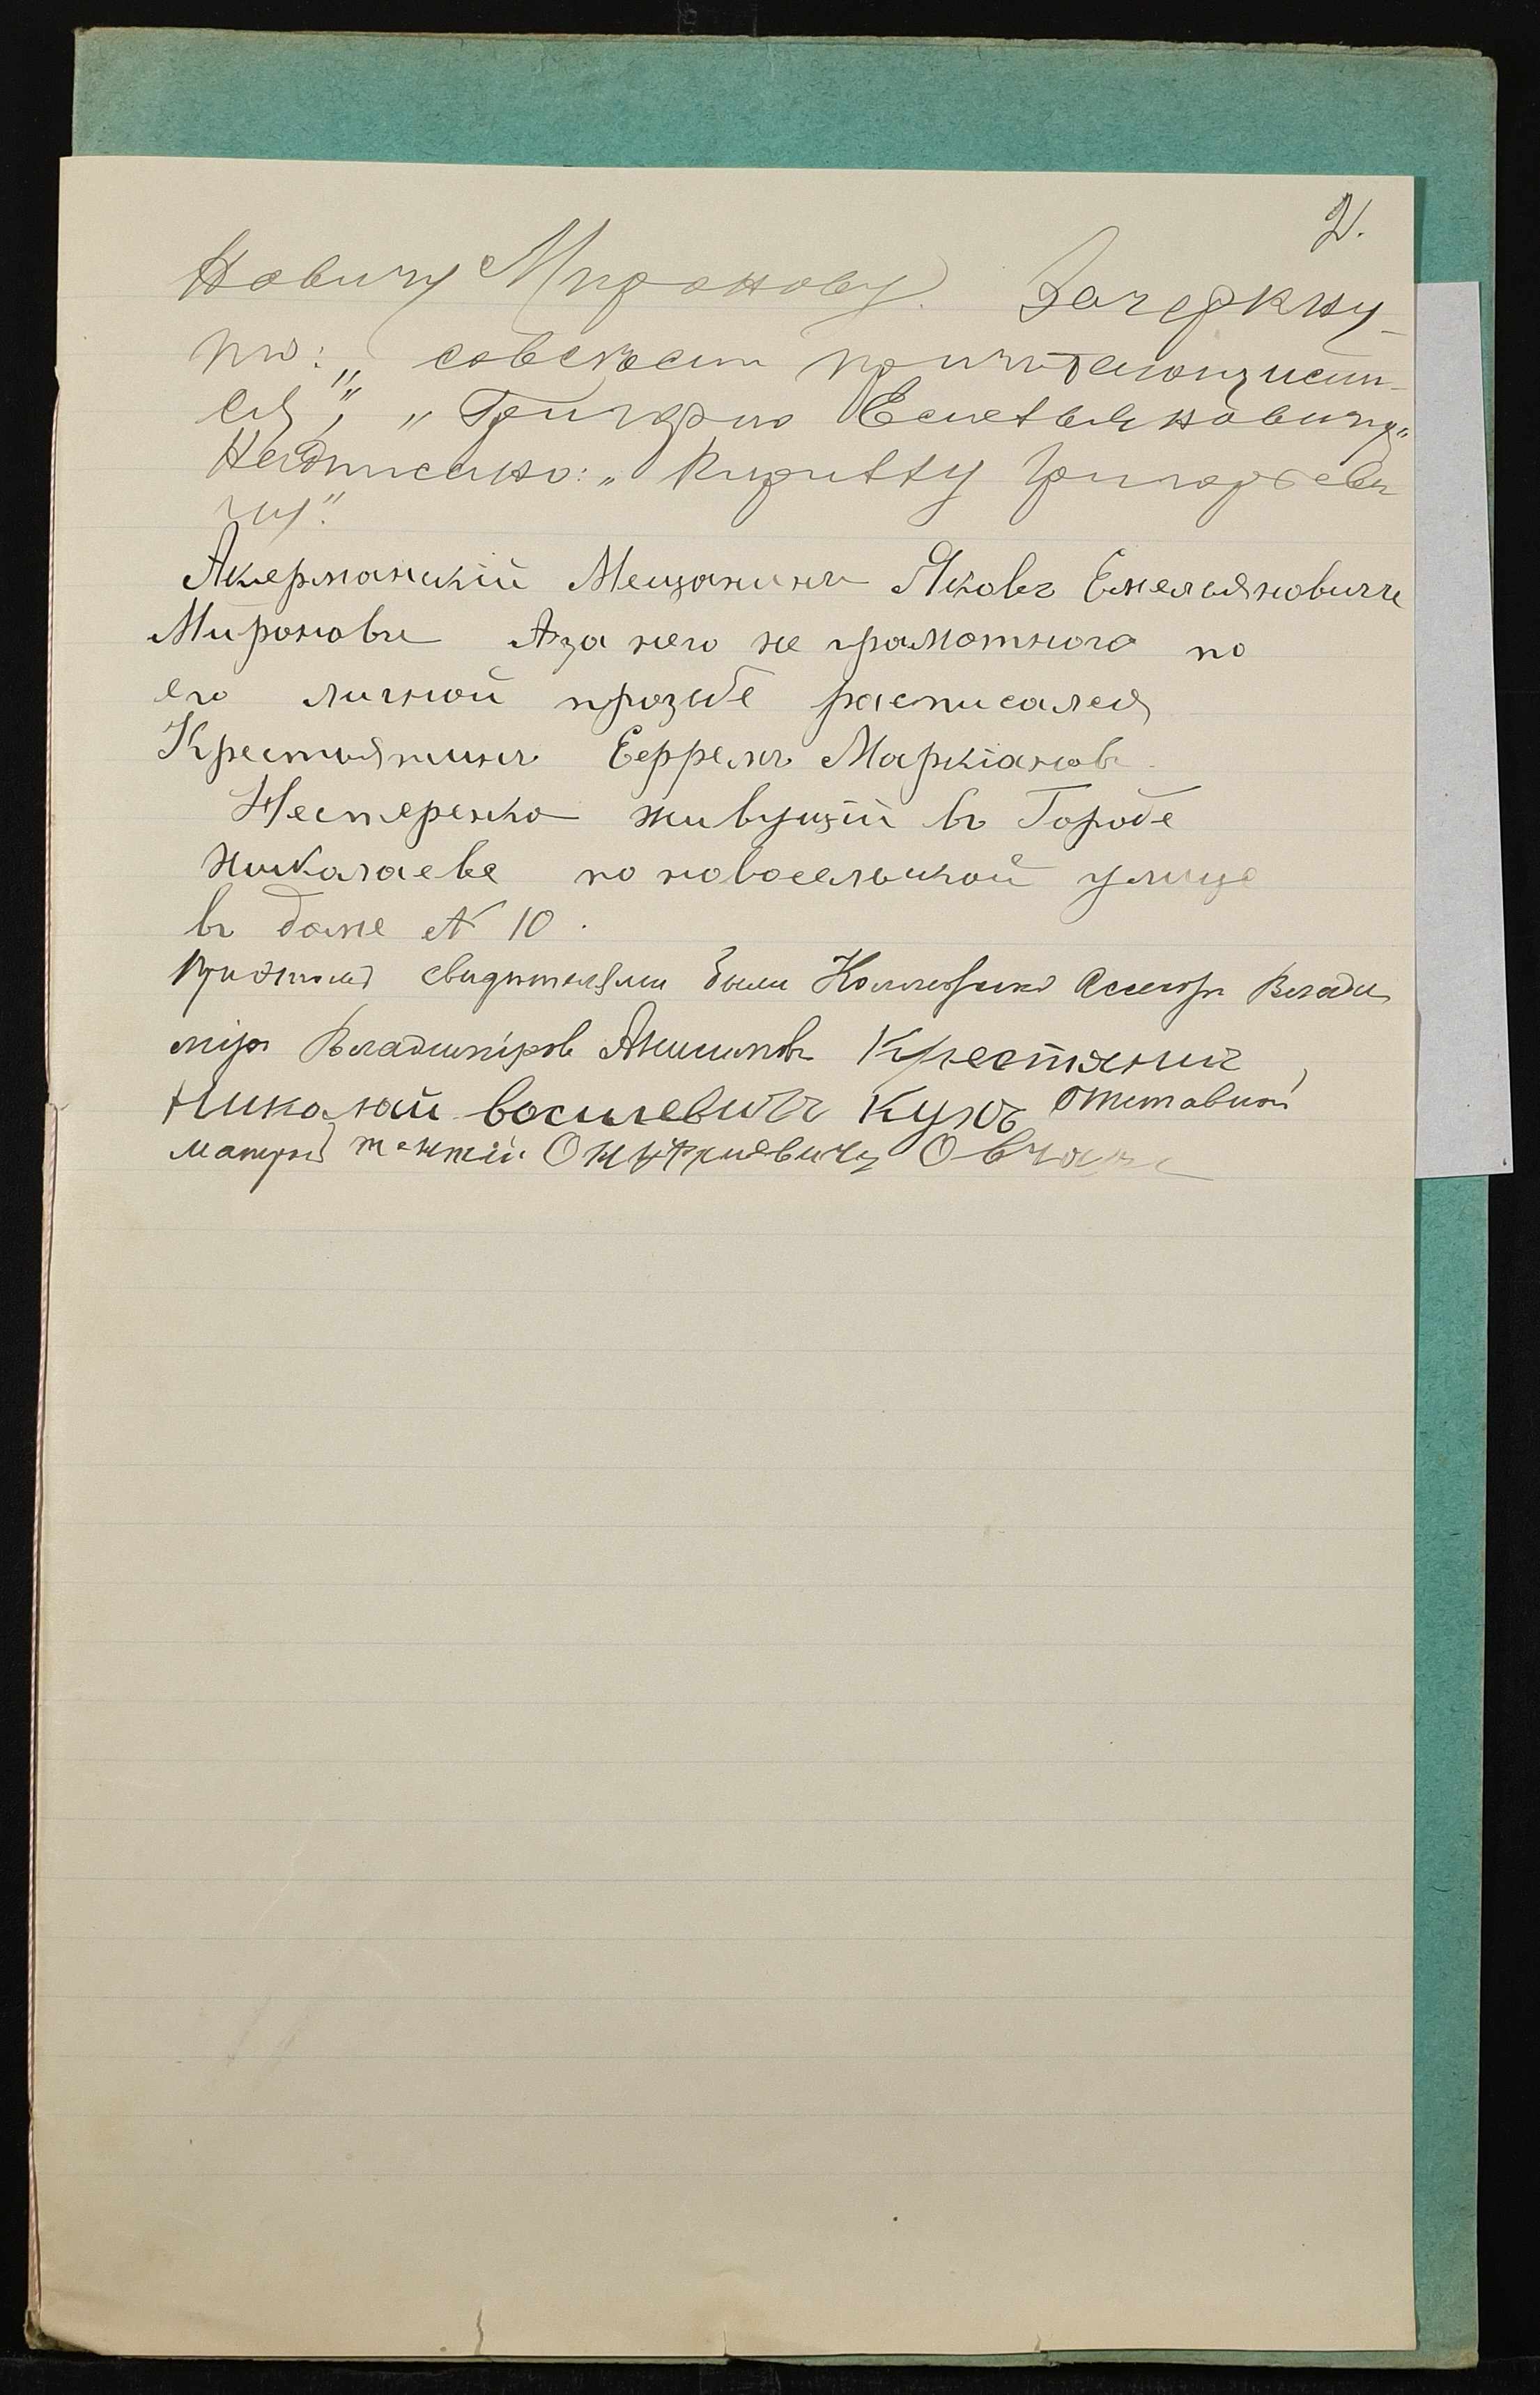 2.
новичу Миронову. Зачеркну-
то: „совсѣсм причитающимся-
ся", „Григорію Емельяновичу"
Надписано: „Кириллу Григорьеви
чу".
Акерманскій Мещанинъ Яковъ Емельяновичъ
Мироновъ А за него не грамотного по
его личной прозьбе расписался
Крестьянинъ Маркіановъ
Нестеренко живущій въ Городе
Николаеве по новосельской улице
въ доме № 10.
При этомъ свидѣтелями были Коллежскій Асесоръ Влади
міръ Владиміровъ Акимовъ Крестянинъ
Николай василевичъ Кухъ Отставной
матросъ Онуфриевичъ